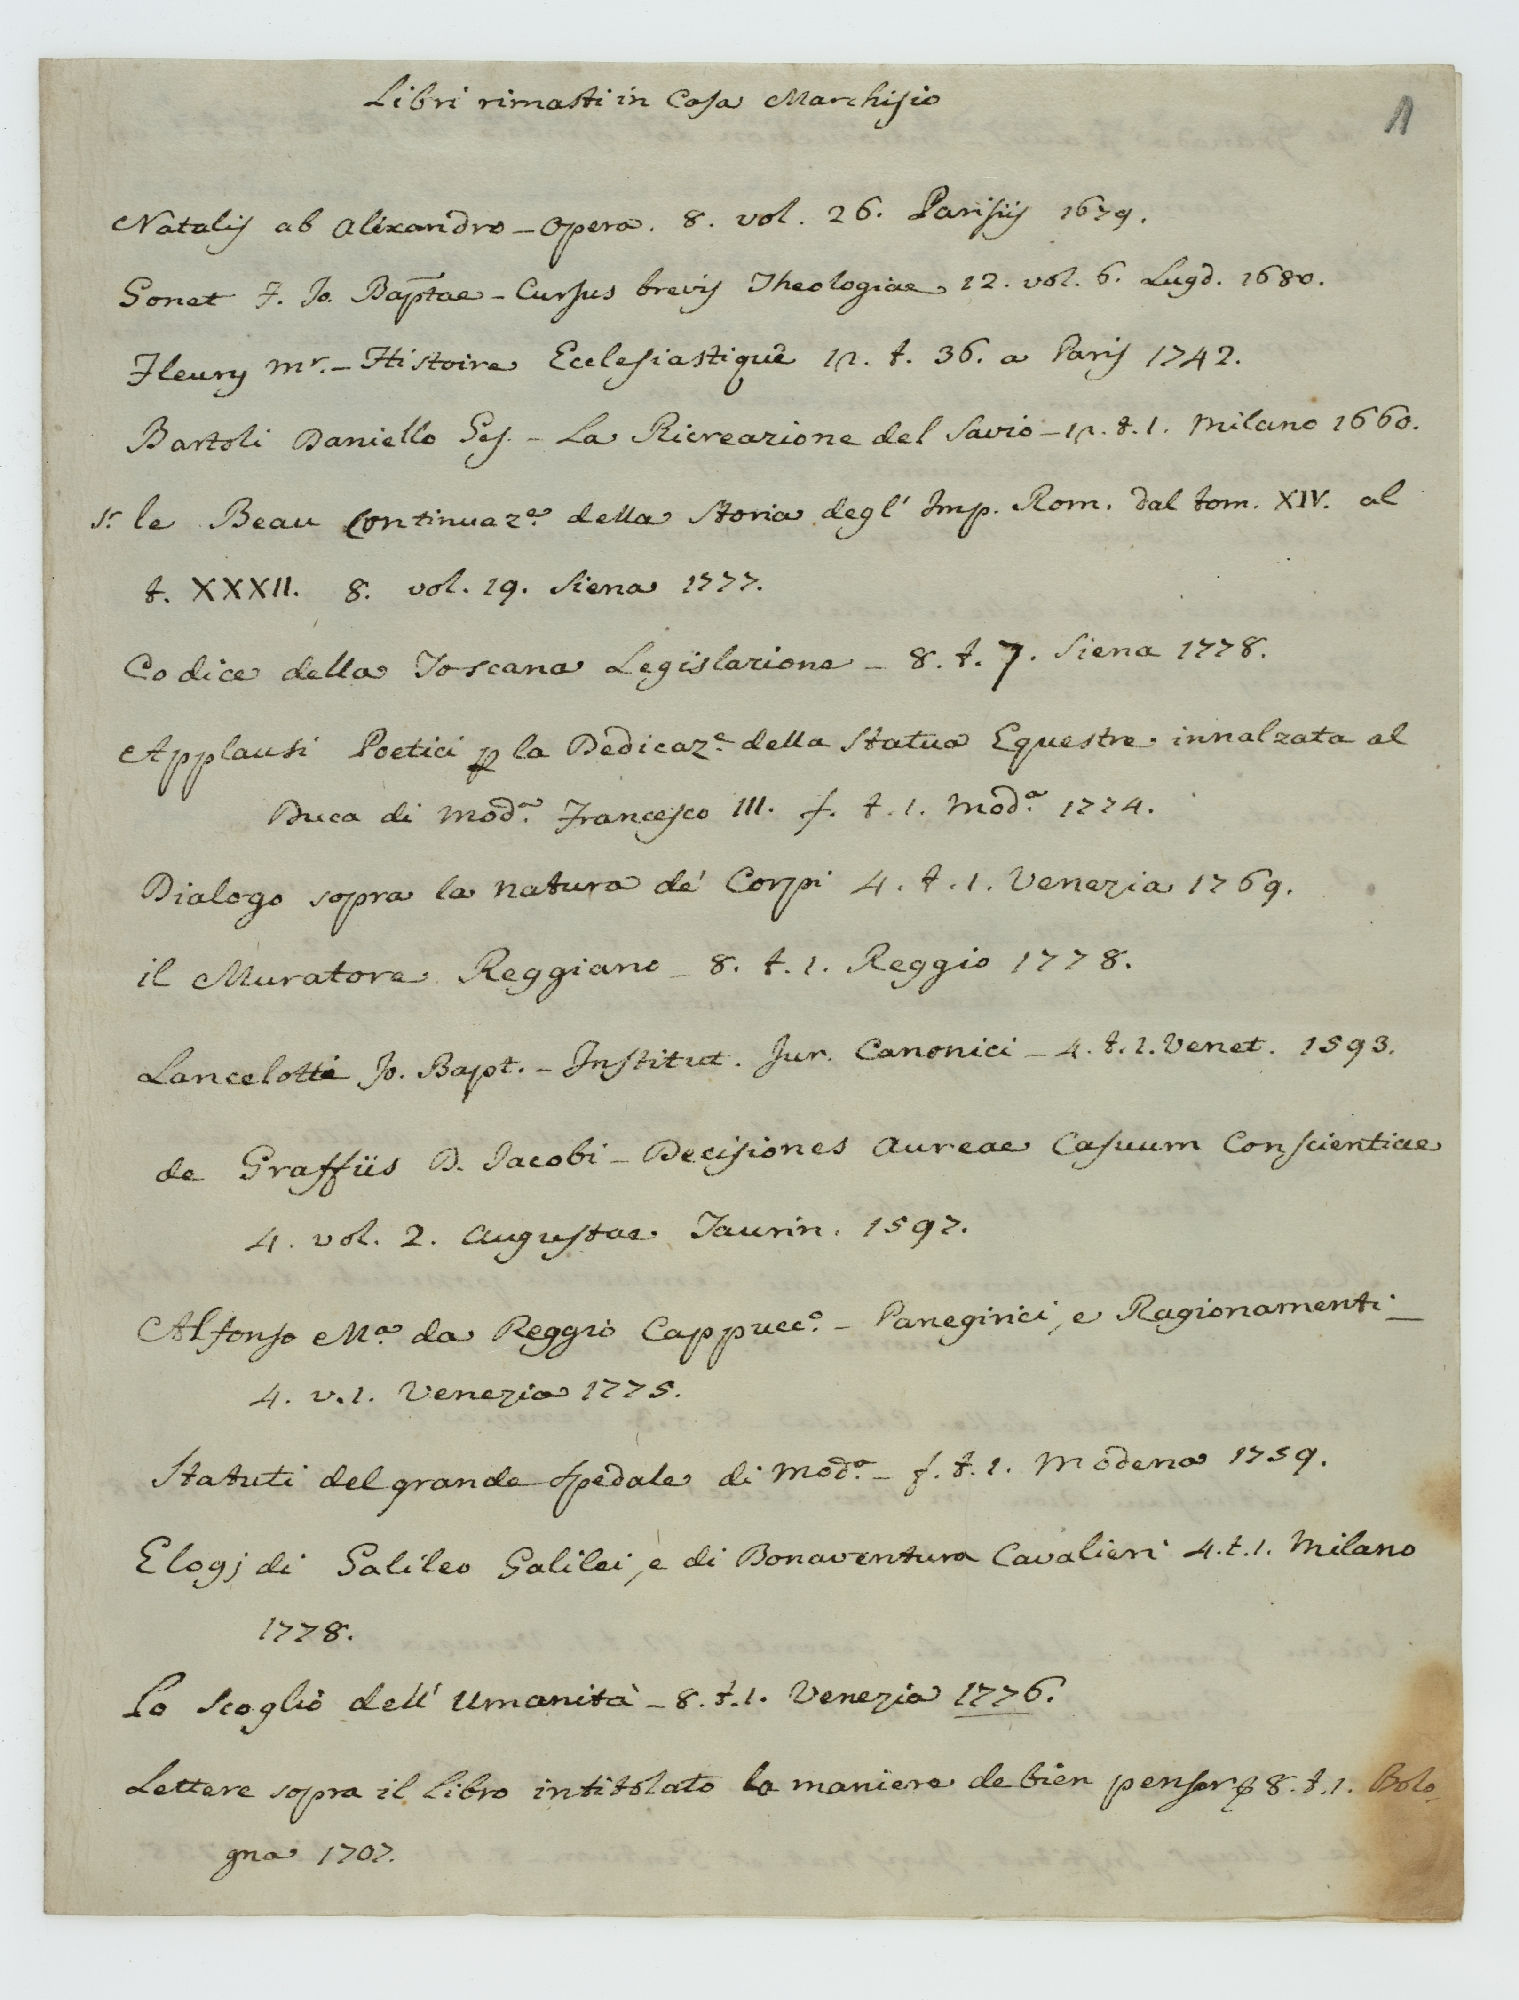 Libri rimasti in Casa Marchisio
1
Natalis ab Alexandro - Opera. 8. vol. 26. Parisiis 1679.
Gonet F. Jo. Baptae - Cursus brevis Theologiae 12. vol. 6. Lugd. 1680.
Fleury Mr. - Histoire Ecclesiastique 12. t. 36. a Paris 1742.
Bartoli Daniello Ges. - La Ricreazione del Savio - 12. t. 1. Milano 1660.
Sr. le Beau Continuaz.e della Storia degl' Imp. Rom. dal tom. XIV. al
t. XXXII. 8. vol. 19. Siena 1777.
Codice della Toscana Legislazione - 8. t. 7. Siena 1778.
Applausi Poetici p la Dedicaz.e della Statua Equestre innalzata al
Duca di Mod.a Francesco III. f. t. 1. Mod.a 1774.
Dialogo sopra la natura de' Corpi 4. t. 1. Venezia 1769.
il Muratore Reggiano - 8. t. 1. Reggio 1778.
Lancelotti Jo. Bapt. - Institut. Jur. Canonici - 4. t. 1. Venet. 1593.
de Graffiis D. Jacobi - Decisiones Aureae Casuum Conscientiae
4. vol. 2. Augustae Taurin. 1597.
Alfonso M.a da Reggio Cappucc.o - Panegirici, e Ragionamenti -
4. v. 1. Venezia 1775.
Statuti del grande Spedale di Mod.a - f. t. 1. Modena 1759.
Elogj di Galileo Galilei, e di Bonaventura Cavalieri 4. t. 1. Milano
1778.
Lo Scoglio dell' Umanità - 8. t. 1. Venezia 1776.
Lettere sopra il Libro intitolato la maniere de bien penser 8. t. 1. Bolo-
gna 1707.